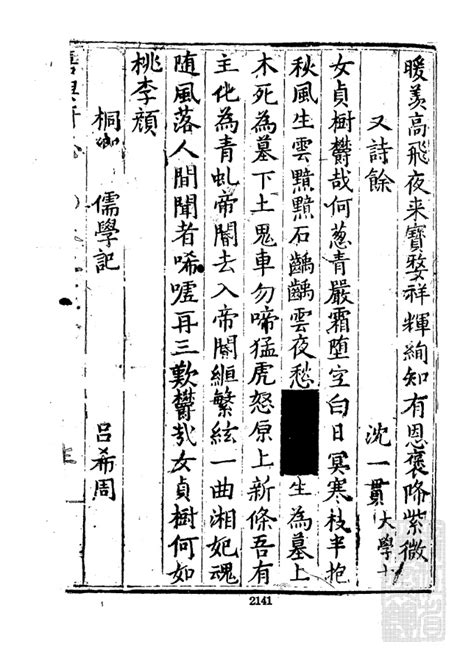 暖羡高飛夜来寶婺祥輝絢知有恩褒降紫微
又詩餘 沈一貫 大學士
女貞樹欝哉何葱青嚴霜堕空白日冥寒枝半抱
秋風生雲黯黯石齵齵雲夜愁 生為墓上
木死為墓下土鬼車勿啼猛虎怒原上新條吾有
主化為青虬帝閽去入帝閽絙繁絃一曲湘妃魂
随風落人間聞者唏嘘再三歎欝哉女貞樹何如
桃李顔
桐鄉 儒學記 吕希周
2141